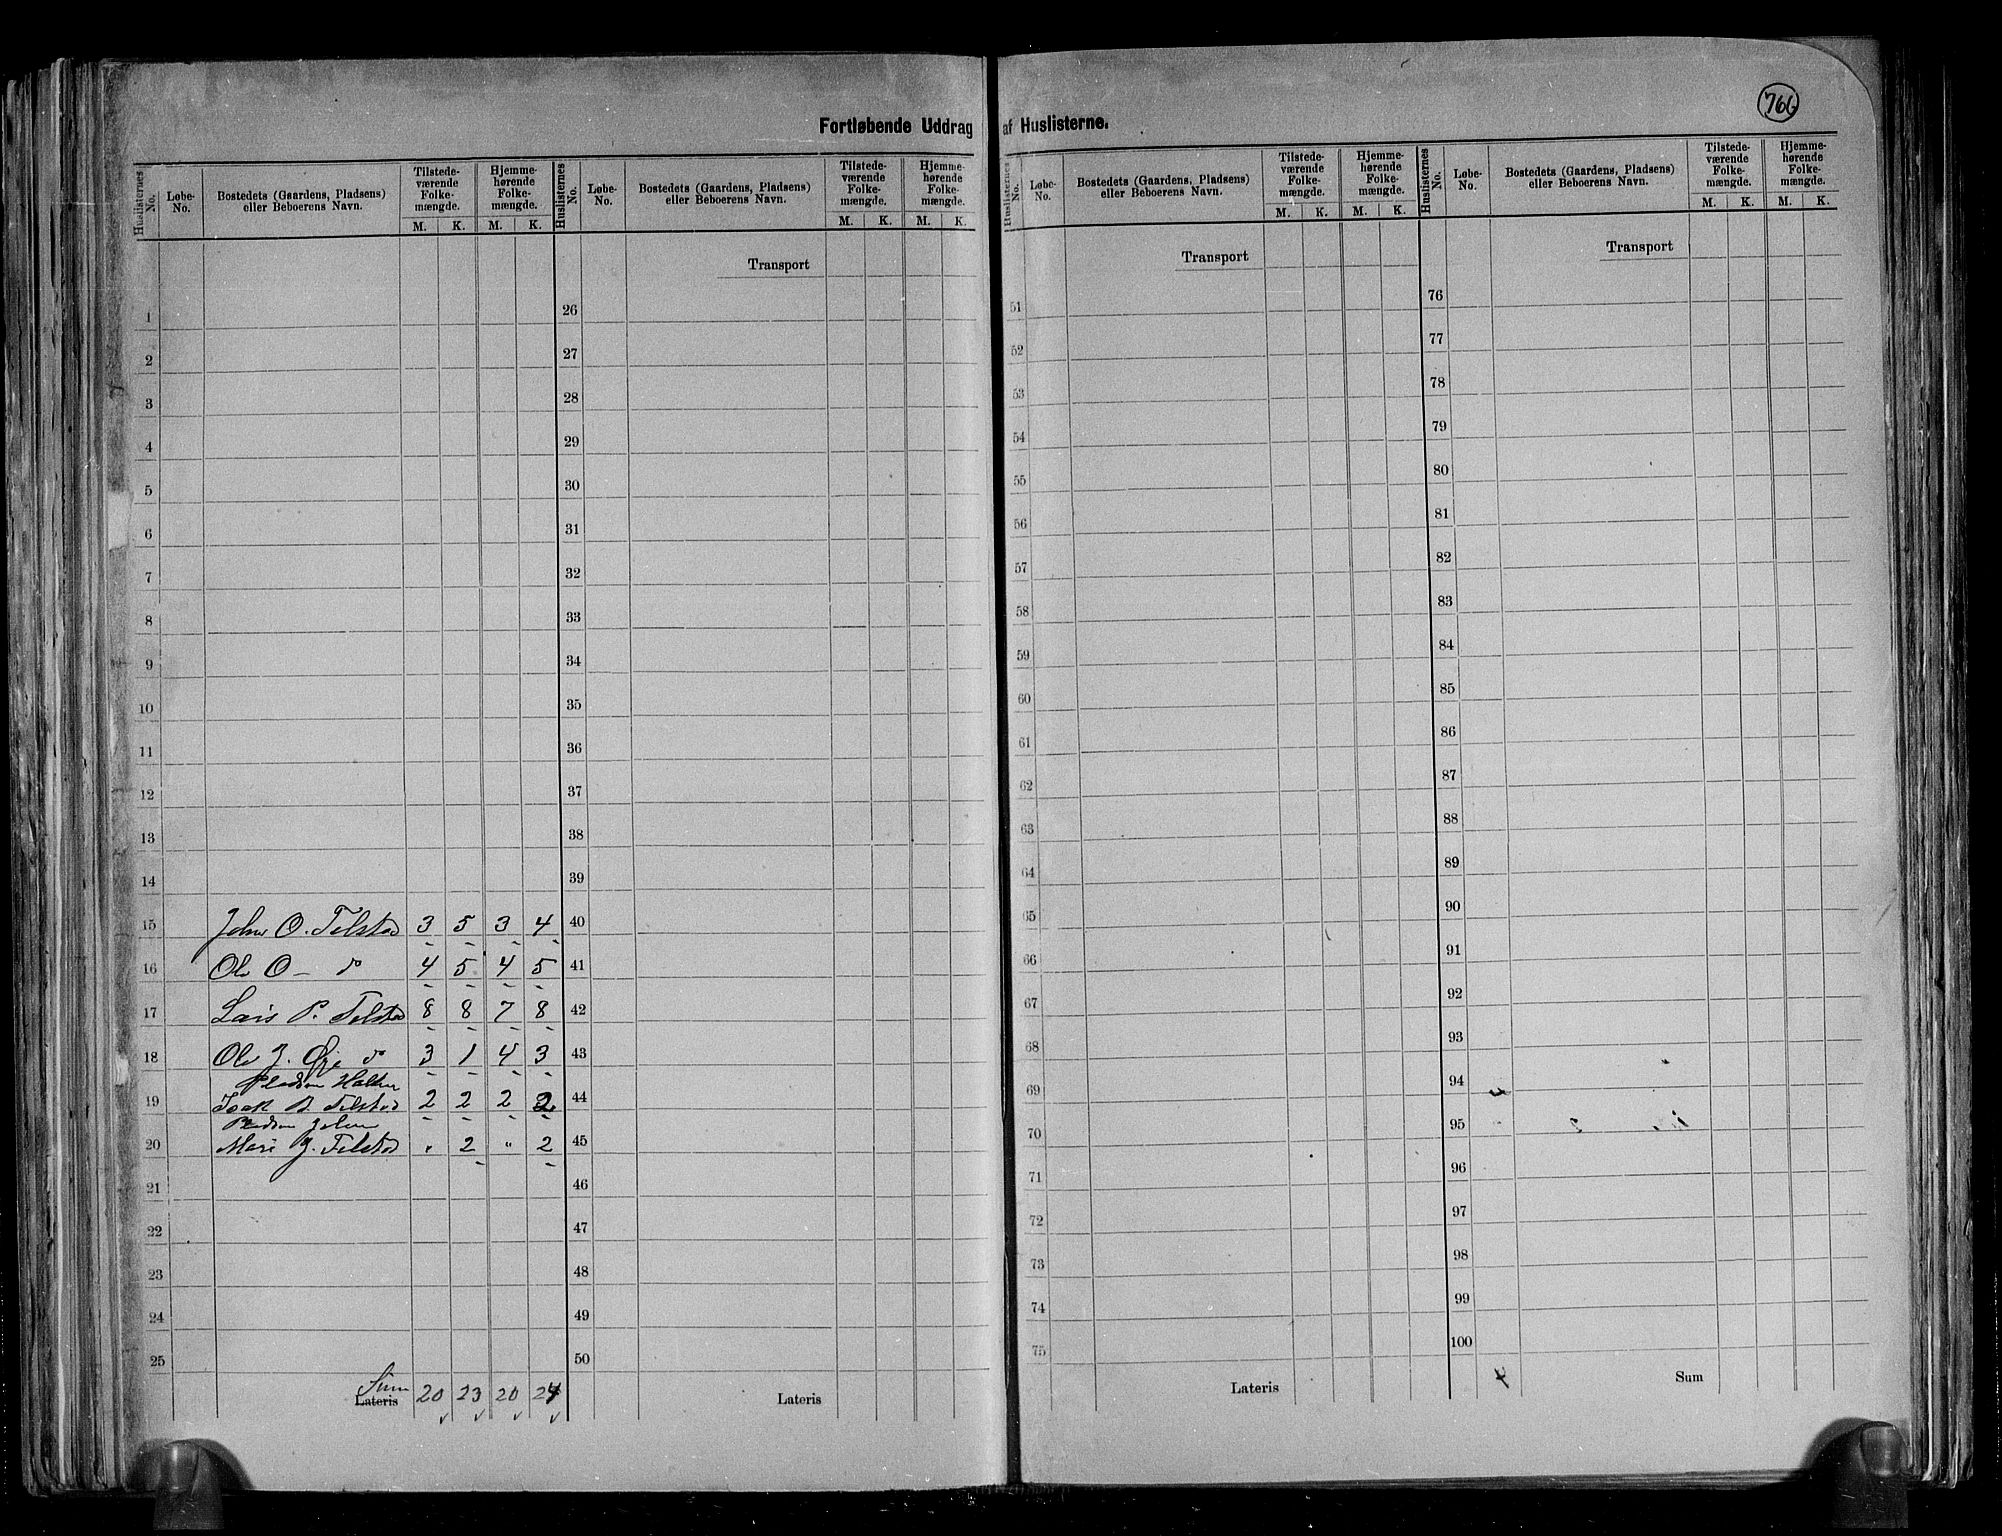 766
Fortløbende Uddrag af Huslisterne.
Huslisternes No. Løbe-No. Bostedets (Gaardens, Pladsens) eller Beboerens Navn. Tilstede-værende Folke-mængde. M. K. Hjemme-hørende Folke-mængde. M. K.
1
2
3
4
5
6
7
8
9
10
11
12
13
14
15 John O. Telstad 3 5 3 4
16 Ole O— do 4 5 4 5
17 Lars P. Telstad 8 8 7 8
18 Ole J. Øje do 3 1 4 3
Pladsen Halten
19 Isak B. Telstad 2 2 2 2
Pladsen
20 Mari J. Telstad " 2 " 2
21
22
23
24
25
Sum
Lateris 20 23 20 24
Huslisternes No. Løbe-No. Bostedets (Gaardens, Pladsens) eller Beboerens Navn. Tilstede-værende Folke-mængde. M. K. Hjemme-hørende Folke-mængde. M. K.
Transport
26
27
28
29
30
31
32
33
34
35
36
37
38
39
40
41
42
43
44
45
46
47
48
49
50
Lateris
Huslisternes No. Løbe-No. Bostedets (Gaardens, Pladsens) eller Beboerens Navn. Tilstede-værende Folke-mængde. M. K. Hjemme-hørende Folke-mængde. M. K.
Transport
51
52
53
54
55
56
57
58
59
60
61
62
63
64
65
66
67
68
69
70
71
72
73
74
75
Lateris
Huslisternes No. Løbe-No. Bostedets (Gaardens, Pladsens) eller Beboerens Navn. Tilstede-værende Folke-mængde. M. K. Hjemme-hørende Folke-mængde. M. K.
Transport
76
77
78
79
80
81
82
83
84
85
86
87
88
89
90
91
92
93
94
95
96
97
98
99
100
Sum